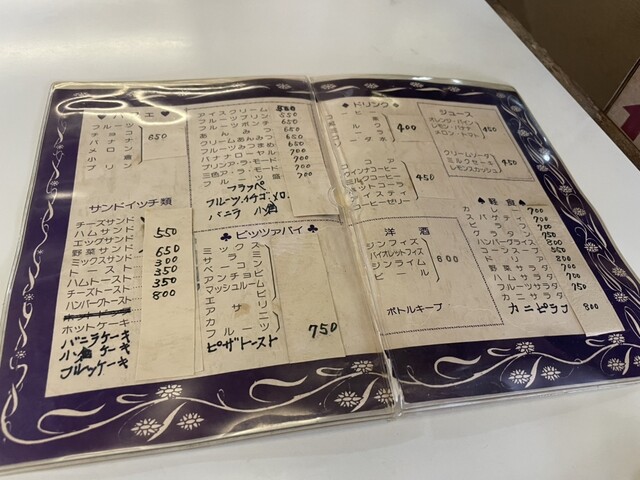 パフェ
フルーツ
チョコ
バナナ
メロン
小倉
プリン
650
アイスクリーム 500
フルーツプリン 550
フルーツポンチ 650
あんみつ 650
クリームあんみつ 650
フルーツみつまめ 650
バナナローヤル 700
プリンア・ラ・モード 700
三色ア・ラ・モード 700
フルーツ盛 700
フラッペ
フルーツ、イチゴ、メロ、
バニラ 小倉
サンドイッチ類
チーズサンド
ハムサンド
エッグサンド
野菜サンド
ミックスサンド
トースト
ハムトースト
チーズトースト
ハンバーグトースト
550
650
300
350
350
800
ホットケーキ
バニラケーキ
小倉ケーキ
フルーツケーキ
♣ ピッツァパイ ♣
ミックス
サラミ
ベーコン
アンチョビ
マッシュルーム
エビ
アサリ
カニ
フルーツ
ピザトースト
750
♠ ドリンク ♠
400
ココア
ウインナコーヒー
ミルクコーヒー
ホットコーラ
アイスティ
コーヒーゼリー
450
ジュース
オレンジ・パイン
レモン・バナナ
メロン・トマト
450
クリームソーダ
ミルクセーキ
レモンスカッシュ
450
洋酒
ジンフィズ
バイオレットフィズ
ジンライム
ビール
600
ボトルキープ
♠ 軽食 ♠
カレー 700
スパゲティ 700
ピラフ 700
グラタン 700
ハンバーグライス 800
コーンスープ 550
ドリア
野菜サラダ
ハムサラダ 700
フルーツサラダ 700
カニサラダ 750
カニピラフ 800